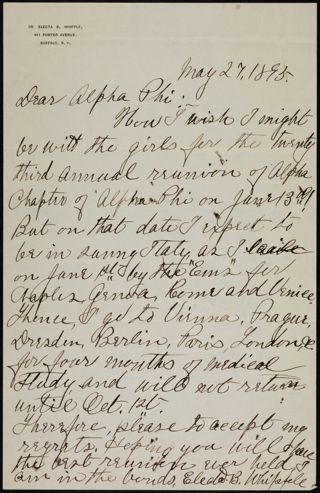 DR. ELECTA B. WHIPPLE,
491 PORTER AVENUE,
BUFFALO, N. Y.
May 27, 1895.
Dear Alpha Phi:
How I wish I might
be with the girls for the twenty
third annual reunion of Alpha
Chapter of Alpha Phi on June 13th 9
But on that date I expect to
be in sunny Italy as I
on June 1st "by the Ems" for
Naples, Genoa, Rome and Venice
Thence, I go to Vienna, Prague,
Dresden, Berlin, Paris, London, &c
for four months of medical
study and will not return
until Oct. 1st.
Therefore, please to accept my
regrets. Hoping you will have
the best reunion ever held, I
am in the bonds, Electa B. Whipple.